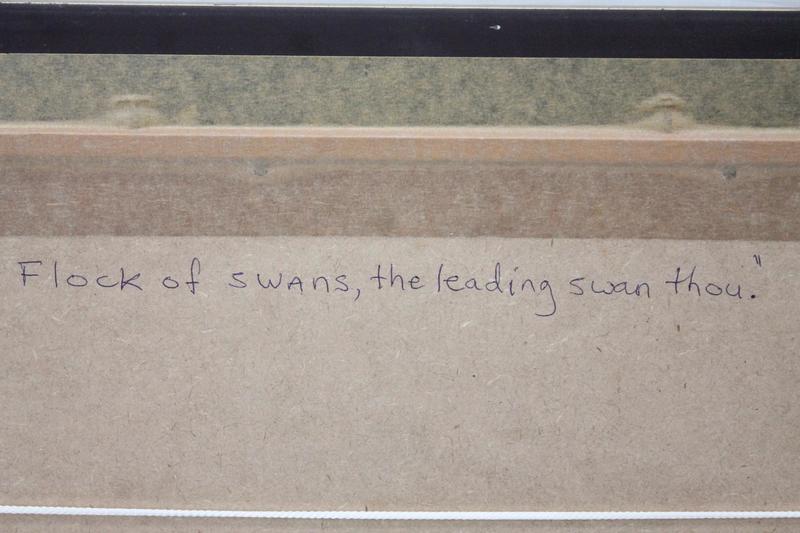 Flock of swans, the leading swan thou."